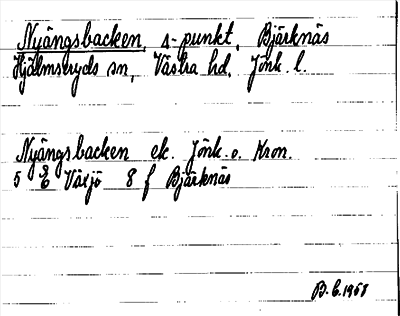 Nyängsbacken, s-punkt, Bjärknäs
Hjälmseryds sn, Västra hd, Jönk. l.
Nyängsbacken ek. Jönk. o. Kron.
5 E Växjö 8 f Bjärknäs
B. E. 1968